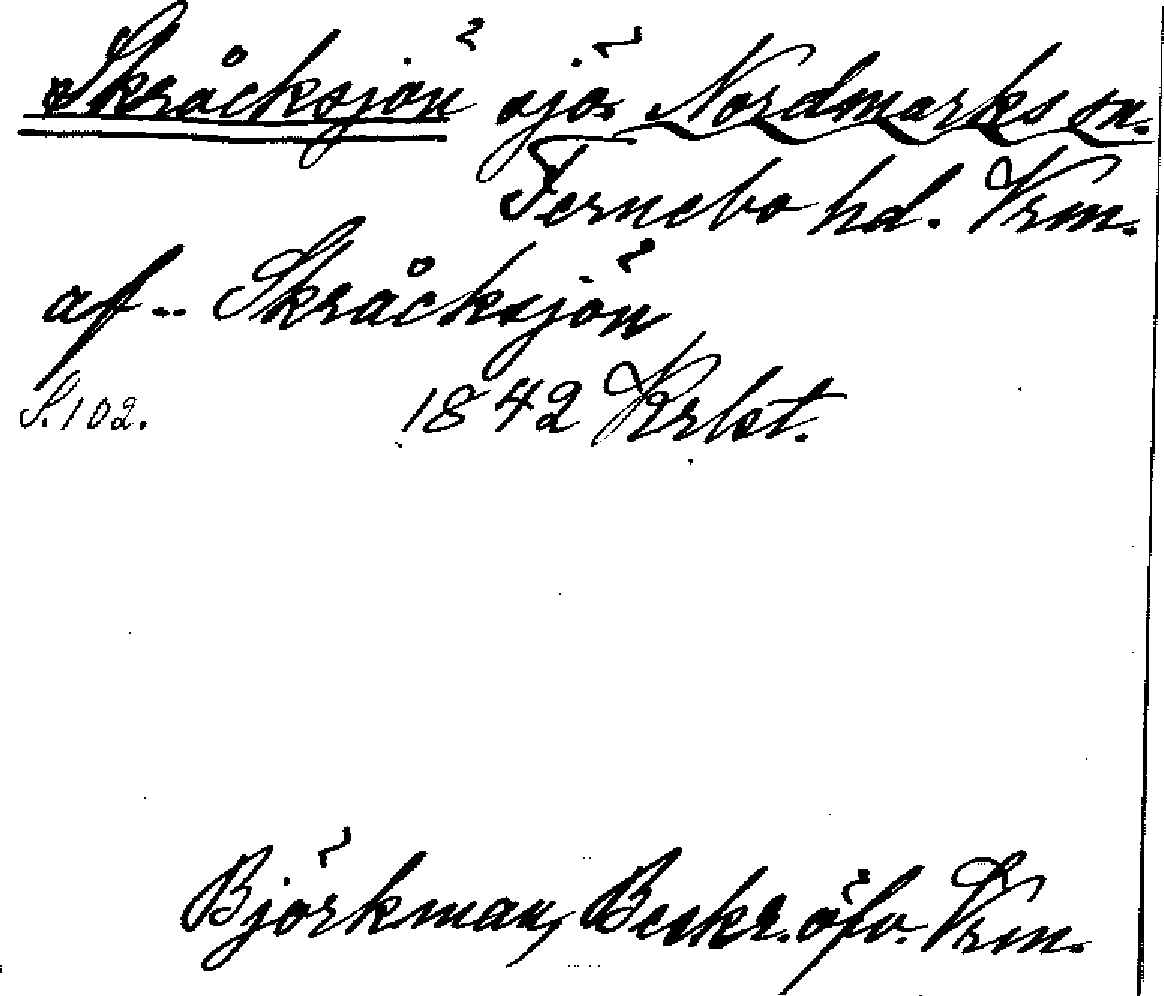 Skråcksjön sjö Nordmarks sn.
Fernebo hd. Vrm.
af.. Skråcksjön
S. 102. 1842 Krbt.
Björkman, Beskr. öfv. Vrm.